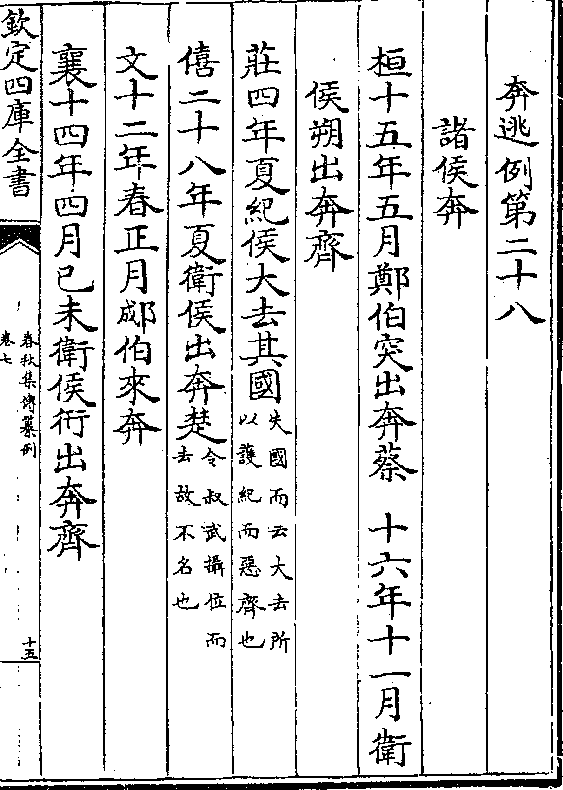 奔逃例第二十八
諸侯奔
桓十五年五月鄭伯突出奔蔡　十六年十一月衛
侯朔出奔齊
莊四年夏紀侯大去其國失國而云大去所
以護紀而惡齊也
僖二十八年夏衛侯出奔楚令叔武攝位而
去故不名也
文十二年春正月郕伯來奔
襄十四年四月已未衛侯衎出奔齊
欽定四庫全書
春秋集傳纂例
卷七
十五